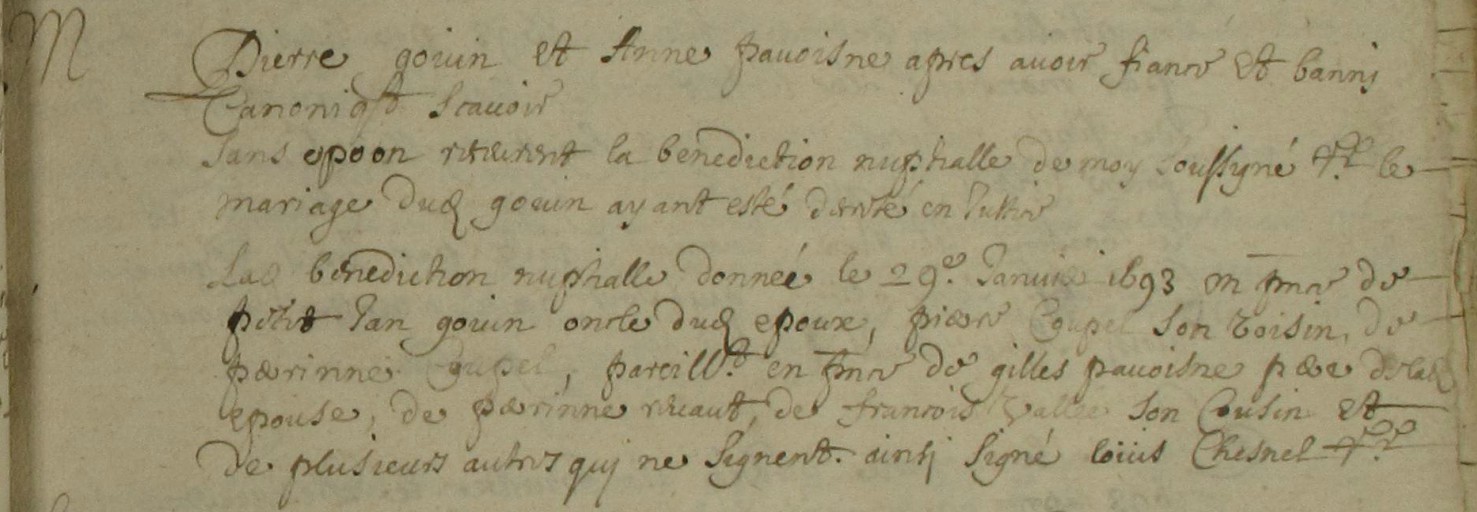 M
Pierre gouin et Anne pavoisne apres avoir fiancé et banni
Canoniqt scavoir
sans opoon receurent la benediction nuptialle de moy soussyné le
mariage dud gouin ayant esté decreté en Justice
Lad benediction nuptialle donneé le 29e Janvie 1693 en pnce de
petit Jan gouin oncle dud epoux, pierre Coupel son voisin, de
perrinne Coupel, pareillt en pnce de gilles pavoisne pere de lad
epouse, de perrinne ruaut, de francois vallee son Cousin et
de plusieurs autres qui ne signent. ainsi signé loüis Chesnel